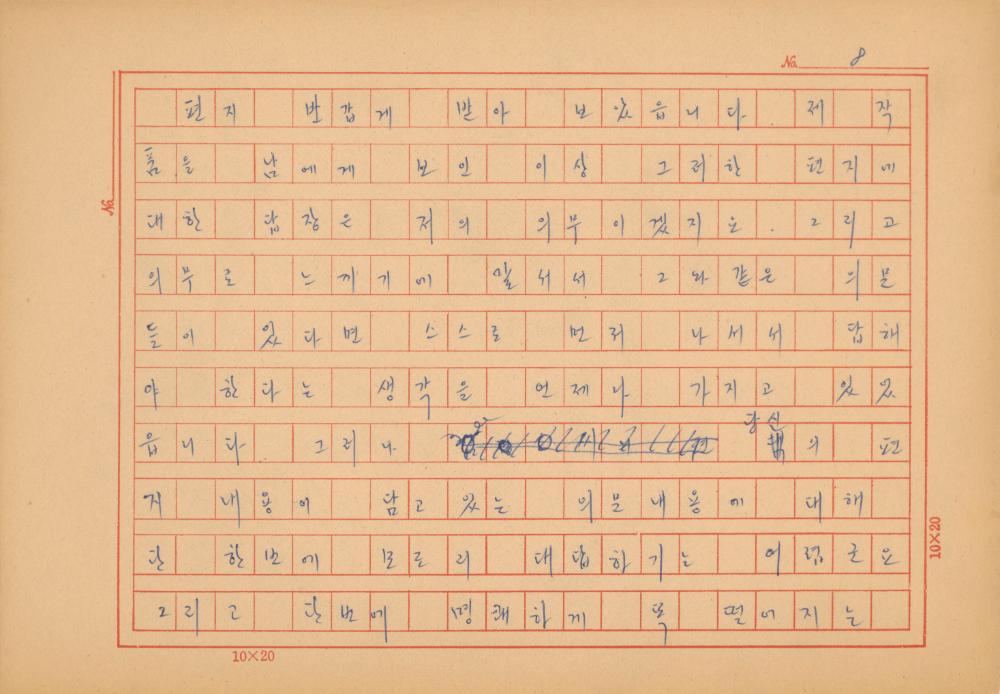 No. 8
편지 반갑게 받아 보았읍니다. 제 작
품을 남에게 보인 이상 그러한 편지에
대한 답장은 저의 의무이겠지요. 그리고
의무로 느끼기에 앞서서 그와 같은 의문
들이 있다면 스스로 먼저 나서서 답해
야 한다는 생각을 언제나 가지고 있었
읍니다. 그러나 당신의 편
지 내용이 담고 있는 의문내용에 대해
단 한번에 모조리 대답하기는 어렵군요
그리고 단번에 명쾌하게 똑 떨어지는
No.
10×20
10×20